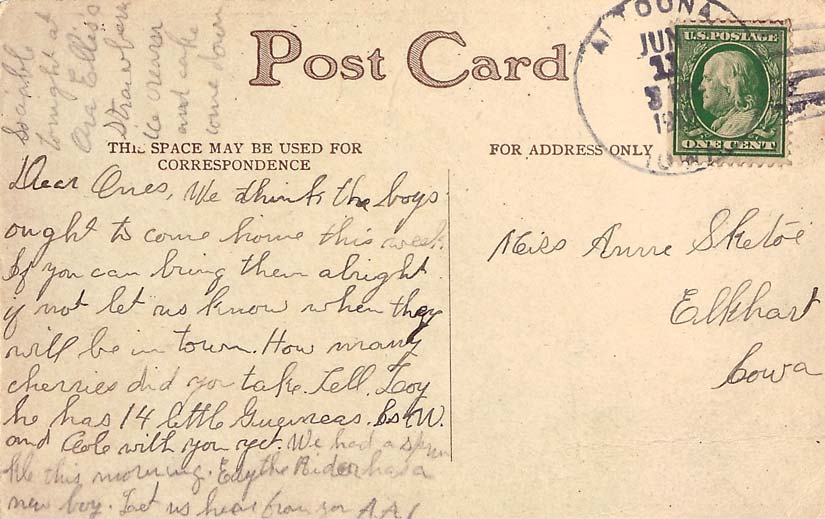 Post Card
THIS SPACE MAY BE USED FOR
CORRESPONDENCE
FOR ADDRESS ONLY
ALTOONA
JUN
11
IOWA
U.S. POSTAGE
ONE CENT
Sociable
tonight at
Ora Ellis's
Strawberry
ice cream
and cake
come down
Dear Ones, We think the boys
ought to come home this week
If you can bring them alright
if not let us know when they
will be in town. How many
cherries did you take. Tell Loy
he has 14 little Guineas. Is W.
and Cole with you yet. We had a sprin
kle this morning. Edythe Rider has a
new boy. Let us hear from you
Miss Anne Sketoe
Elkhart
Iowa